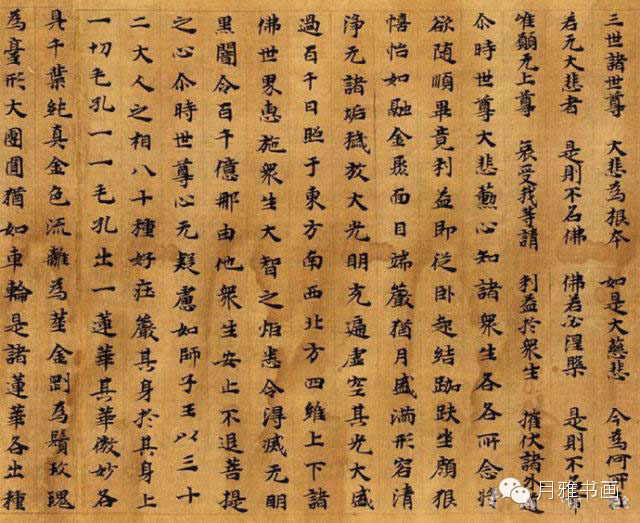 三世諸世尊 大悲為根本 如是大慈悲 今為何所
若无大悲者 是則不名佛 佛為必涅槃 是則不
唯願无上尊 哀受我等請 利益於衆生 摧伏諸外
尒時世尊大悲熏心知諸衆生各各所念將
欲随順畢竟利益即從卧起結跏趺坐顔貌
憘怡如融金聚面目端嚴猶月盛滿形容清
淨无諸垢穢放大光明充遍虚空其光大盛
過百千日照于東方南西北方四維上下諸
佛世界惠施衆生大智之炬悉令得滅无明
黑闇令百千億那由他衆生安止不退菩提
之心尒時世尊心无疑慮如師子王以三十
二大人之相八十種好莊嚴其身於其身上
一切毛孔一一毛孔出一蓮華其華微妙各
具千葉純真金色流離為莖金剛為鬚玫瑰
為臺形大團圓猶如車輪是諸蓮華各出種
月雅书画